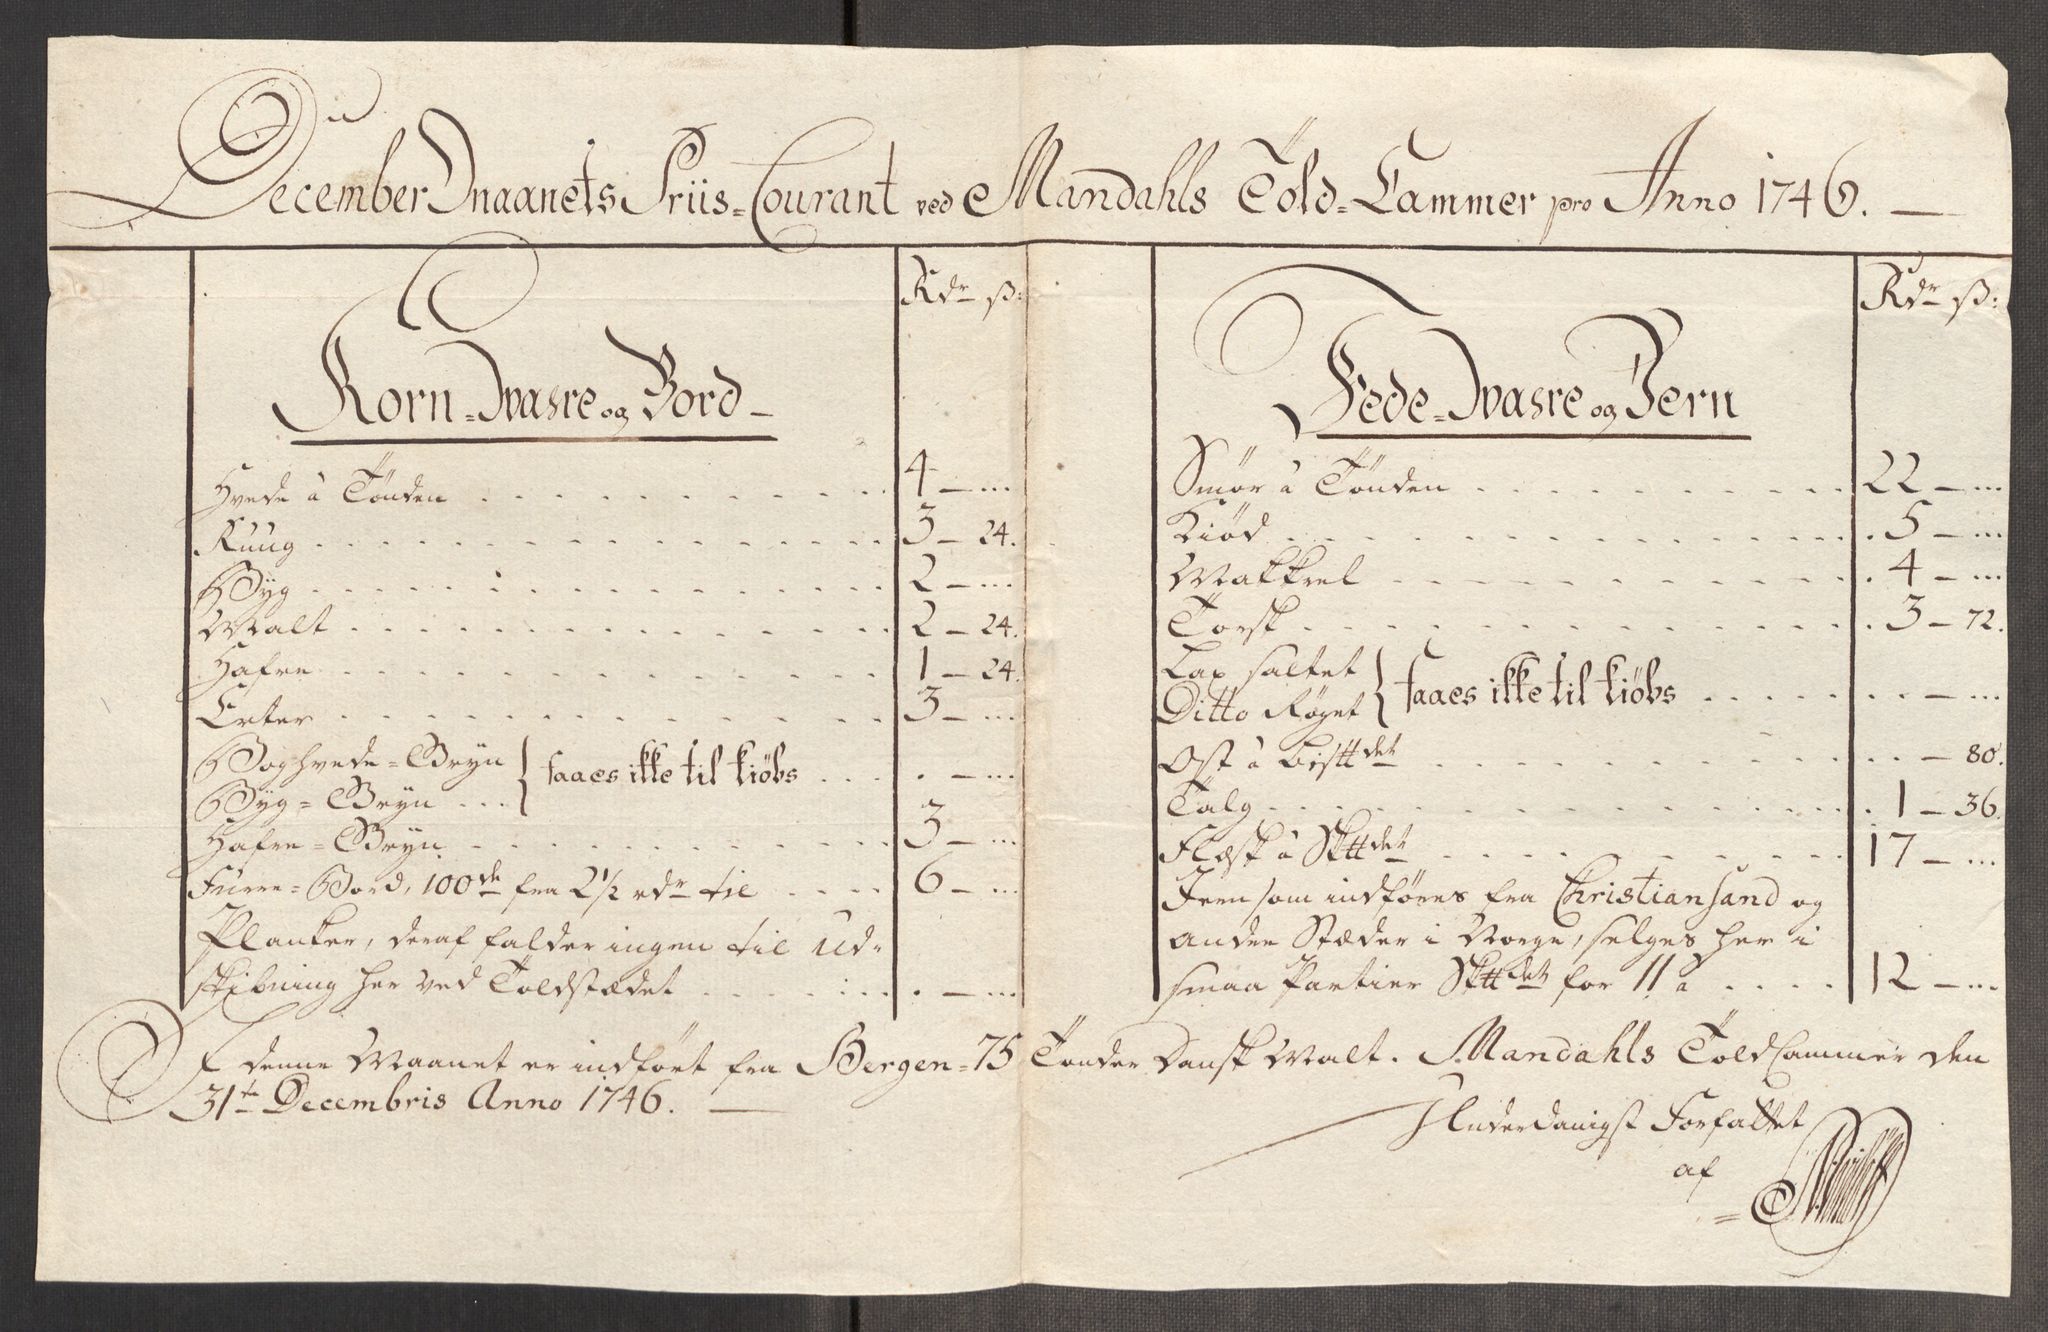 December Maanets Priis=Courant ved Mandahls Told=Cammer pro Anno 1746. —
Rdr ß:
Korn=Wahre og Bord
Hvede á Tønden . . . 4 — ...
Ruug . . . 3 — 24.
Byg . . . 2 — ...
Malt . . . 2 — 24.
Hafre . . . 1 — 24.
Erter . . . 3 — ...
Boghvede=Gryn } faaes ikke til kiøbs . . . . — ...
Byg=Gryn ...
Hafre=Gryn . . . 3 — ...
Furre=Bord, 100de fra 2 1/2 rdr til . . . 6 — ...
Planker, deraf falder ingen til Ud=
skibning her ved Toldstædet . . . . — ...
Rdr ß:
Fede=Wahre og Jern
Smør á Tønden . . . 22 — ...
Kiød . . . 5 — ...
Makkrel . . . 4 — ...
Torsk . . . 3 — 72.
Lax saltet } faaes ikke til kiøbs . . . . — ...
Ditto Røget
Ost á Bis℔det . . . — 80.
Talg . . . 1 — 36.
Flesk á Sk℔det . . . 17 — ...
Jern som indføres fra Christiansand og
anden Stæder i Norge, selges her i
smaa Partier Sk℔det for 11 á . . . 12 — ...
I denne Maanet er indført fra Bergen=75 Tønder Dansk Malt. Mandahls ToldCammer den
31te Decembris Anno 1746. —
Underdanigst Forfattet
af